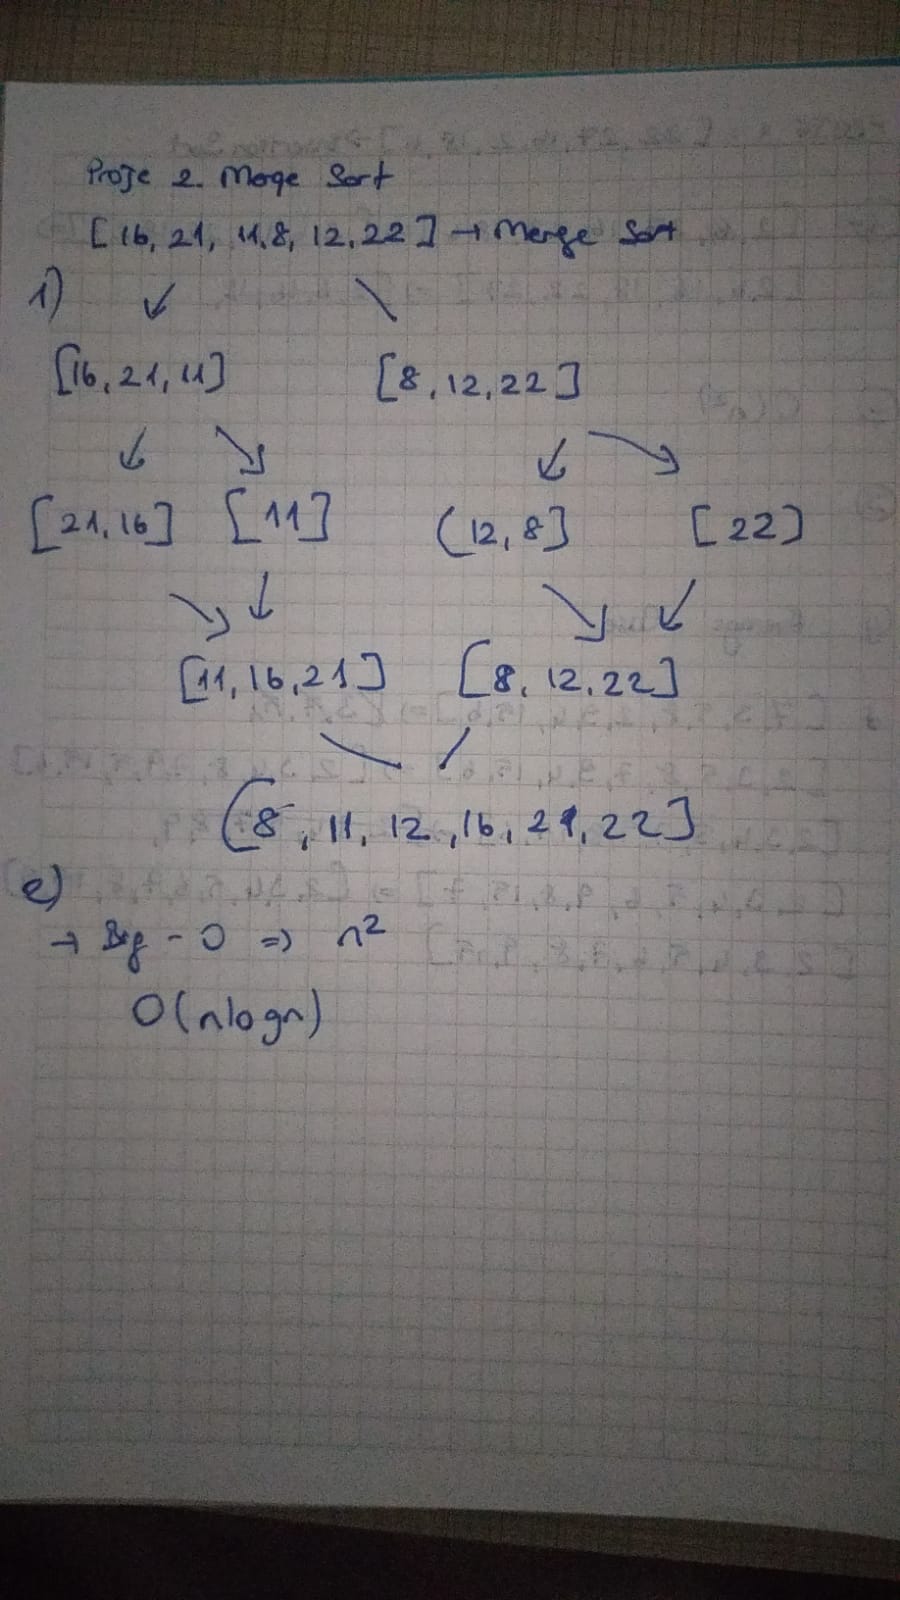 Proje 2. Merge Sort
[16, 21, 11, 8, 12, 22] → Merge Sort
1)
[16, 21, 11] [8, 12, 22]
[21, 16] [11] (12, 8] [22]
[11, 16, 21] [8, 12, 22]
(8, 11, 12, 16, 21, 22]
2)
→ Big - O => n²
O(nlogn)